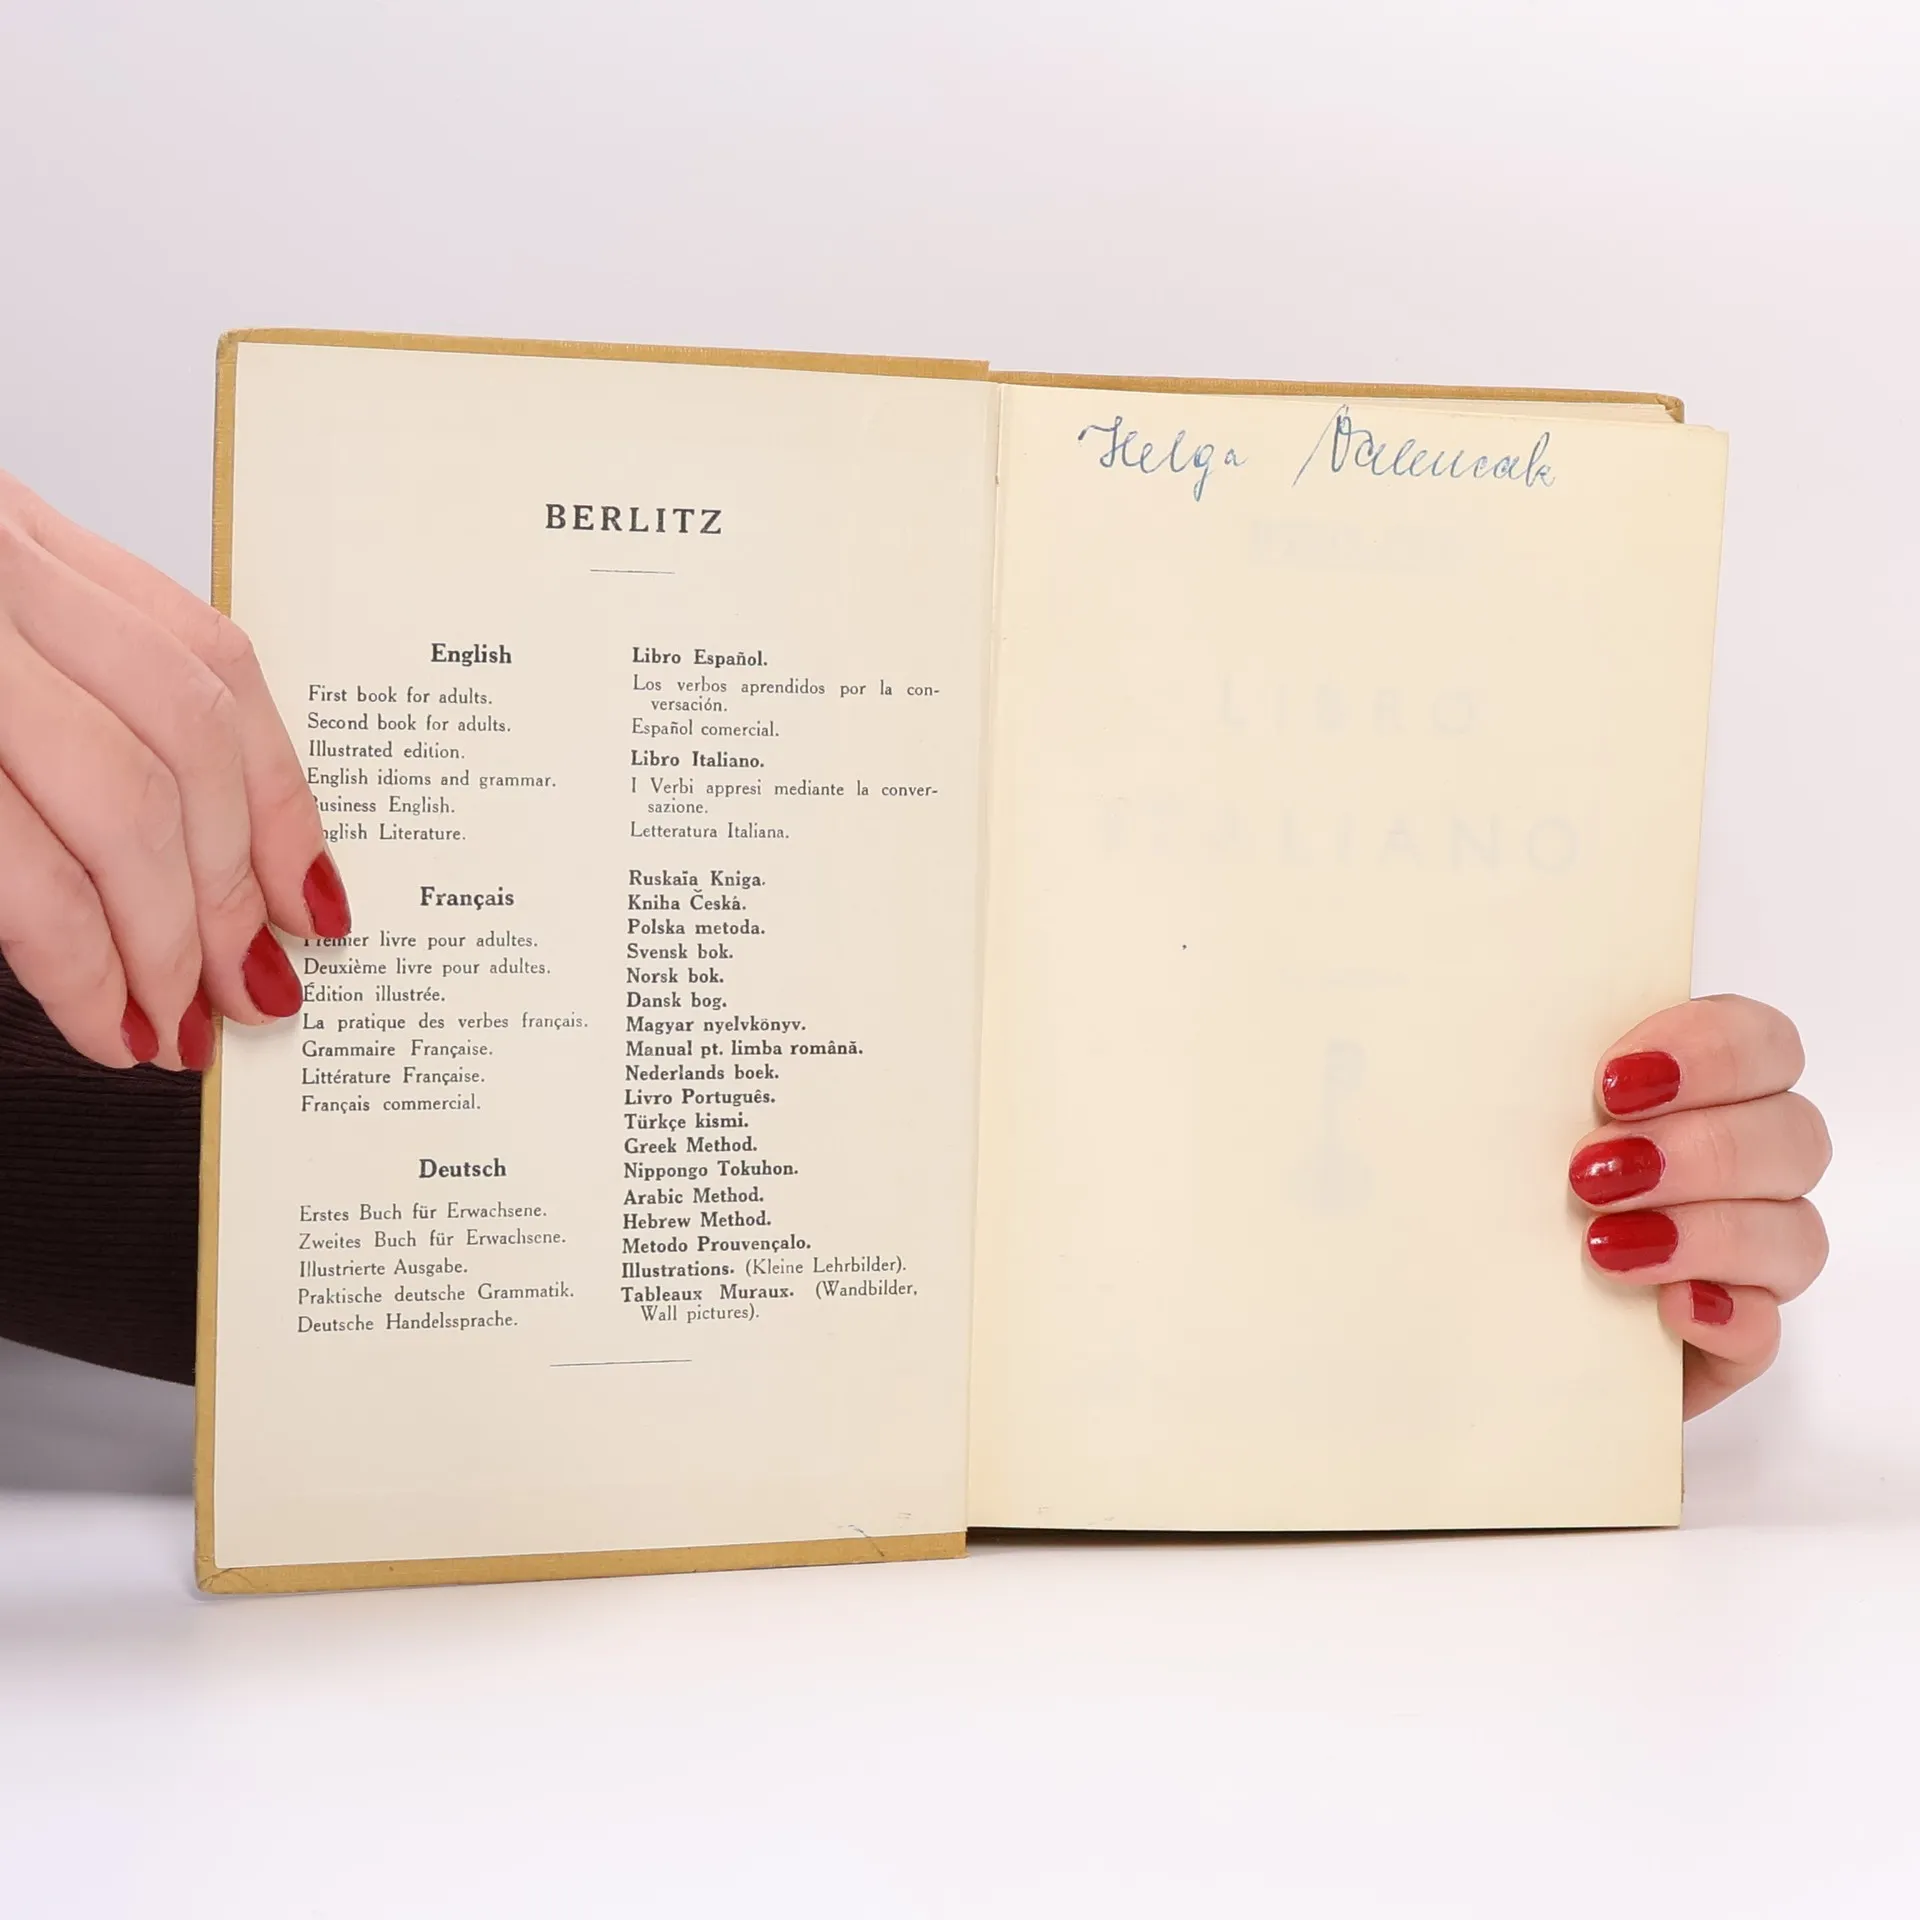 BERLITZ
English
First book for adults.
Second book for adults.
Illustrated edition.
English idioms and grammar.
Business English.
English Literature.
Français
Premier livre pour adultes.
Deuxième livre pour adultes.
Édition illustrée.
La pratique des verbes français.
Grammaire Française.
Littérature Française.
Français commercial.
Deutsch
Erstes Buch für Erwachsene.
Zweites Buch für Erwachsene.
Illustrierte Ausgabe.
Praktische deutsche Grammatik.
Deutsche Handelssprache.
Libro Español.
Los verbos aprendidos por la con-
versación.
Español comercial.
Libro Italiano.
I Verbi appresi mediante la conver-
sazione.
Letteratura Italiana.
Ruskaïa Kniga.
Kniha Česká.
Polska metoda.
Svensk bok.
Norsk bok.
Dansk bog.
Magyar nyelvkönyv.
Manual pt. limba română.
Nederlands boek.
Livro Português.
Türkçe kismi.
Greek Method.
Nippongo Tokuhon.
Arabic Method.
Hebrew Method.
Metodo Prouvençalo.
Illustrations. (Kleine Lehrbilder).
Tableaux Muraux. (Wandbilder,
Wall pictures).
Helga Valencak